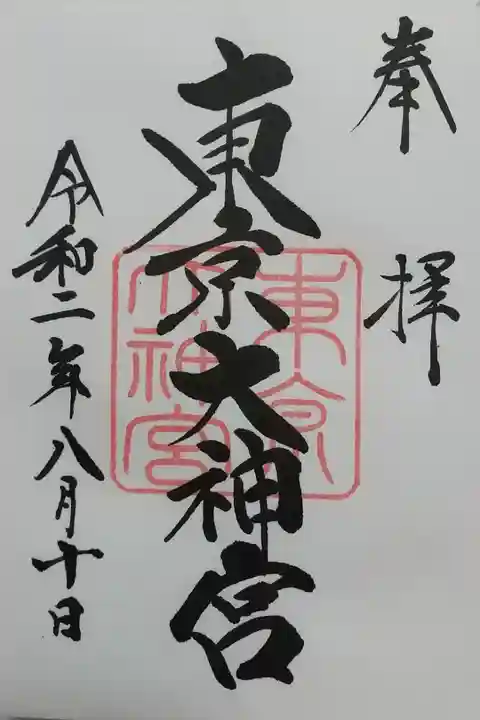 奉拝
東京大神宮
東京大神宮
令和二年八月十日